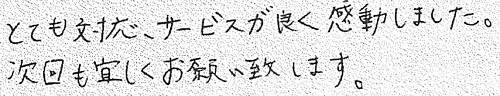 とても対応、サービスが良く感動しました。
次回も宜しくお願い致します。